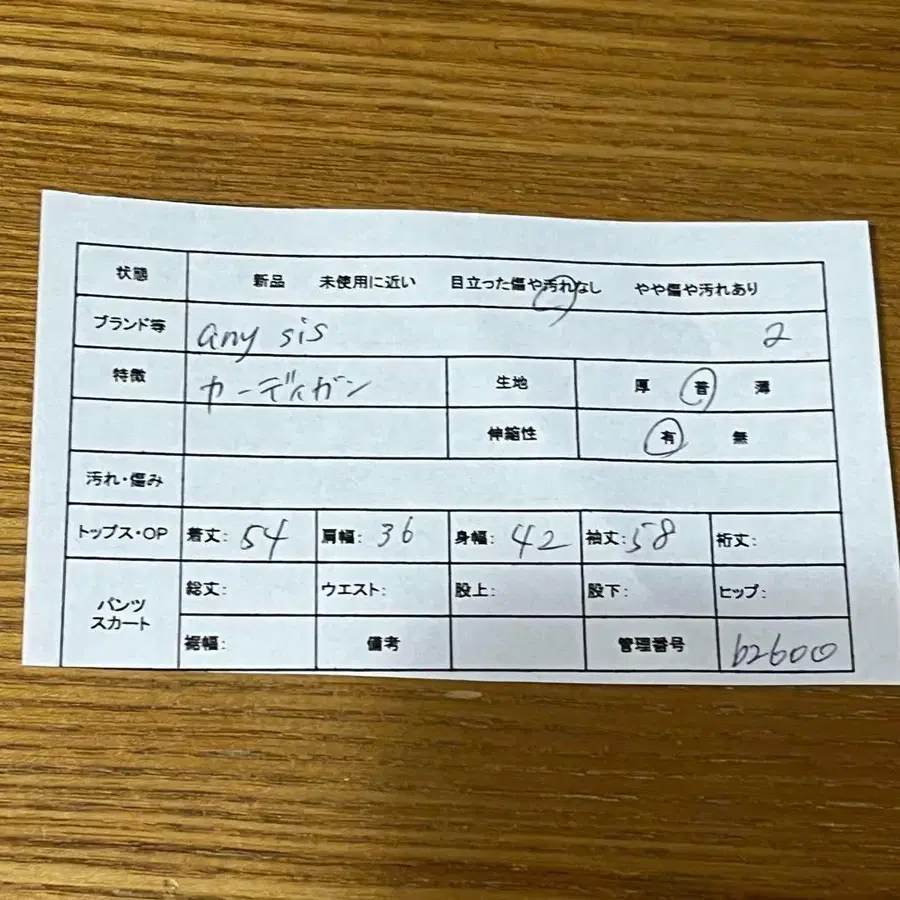 状態 新品 未使用に近い 目立った傷や汚れなし やや傷や汚れあり
ブランド等 any sis 2
特徴 カーディガン 生地 厚 普 薄
伸縮性 有 無
汚れ・傷み
トップス・OP 着丈: 54 肩幅: 36 身幅: 42 袖丈: 58 裄丈:
パンツ スカート 総丈: ウエスト: 股上: 股下: ヒップ:
裾幅: 備考 管理番号 b2600